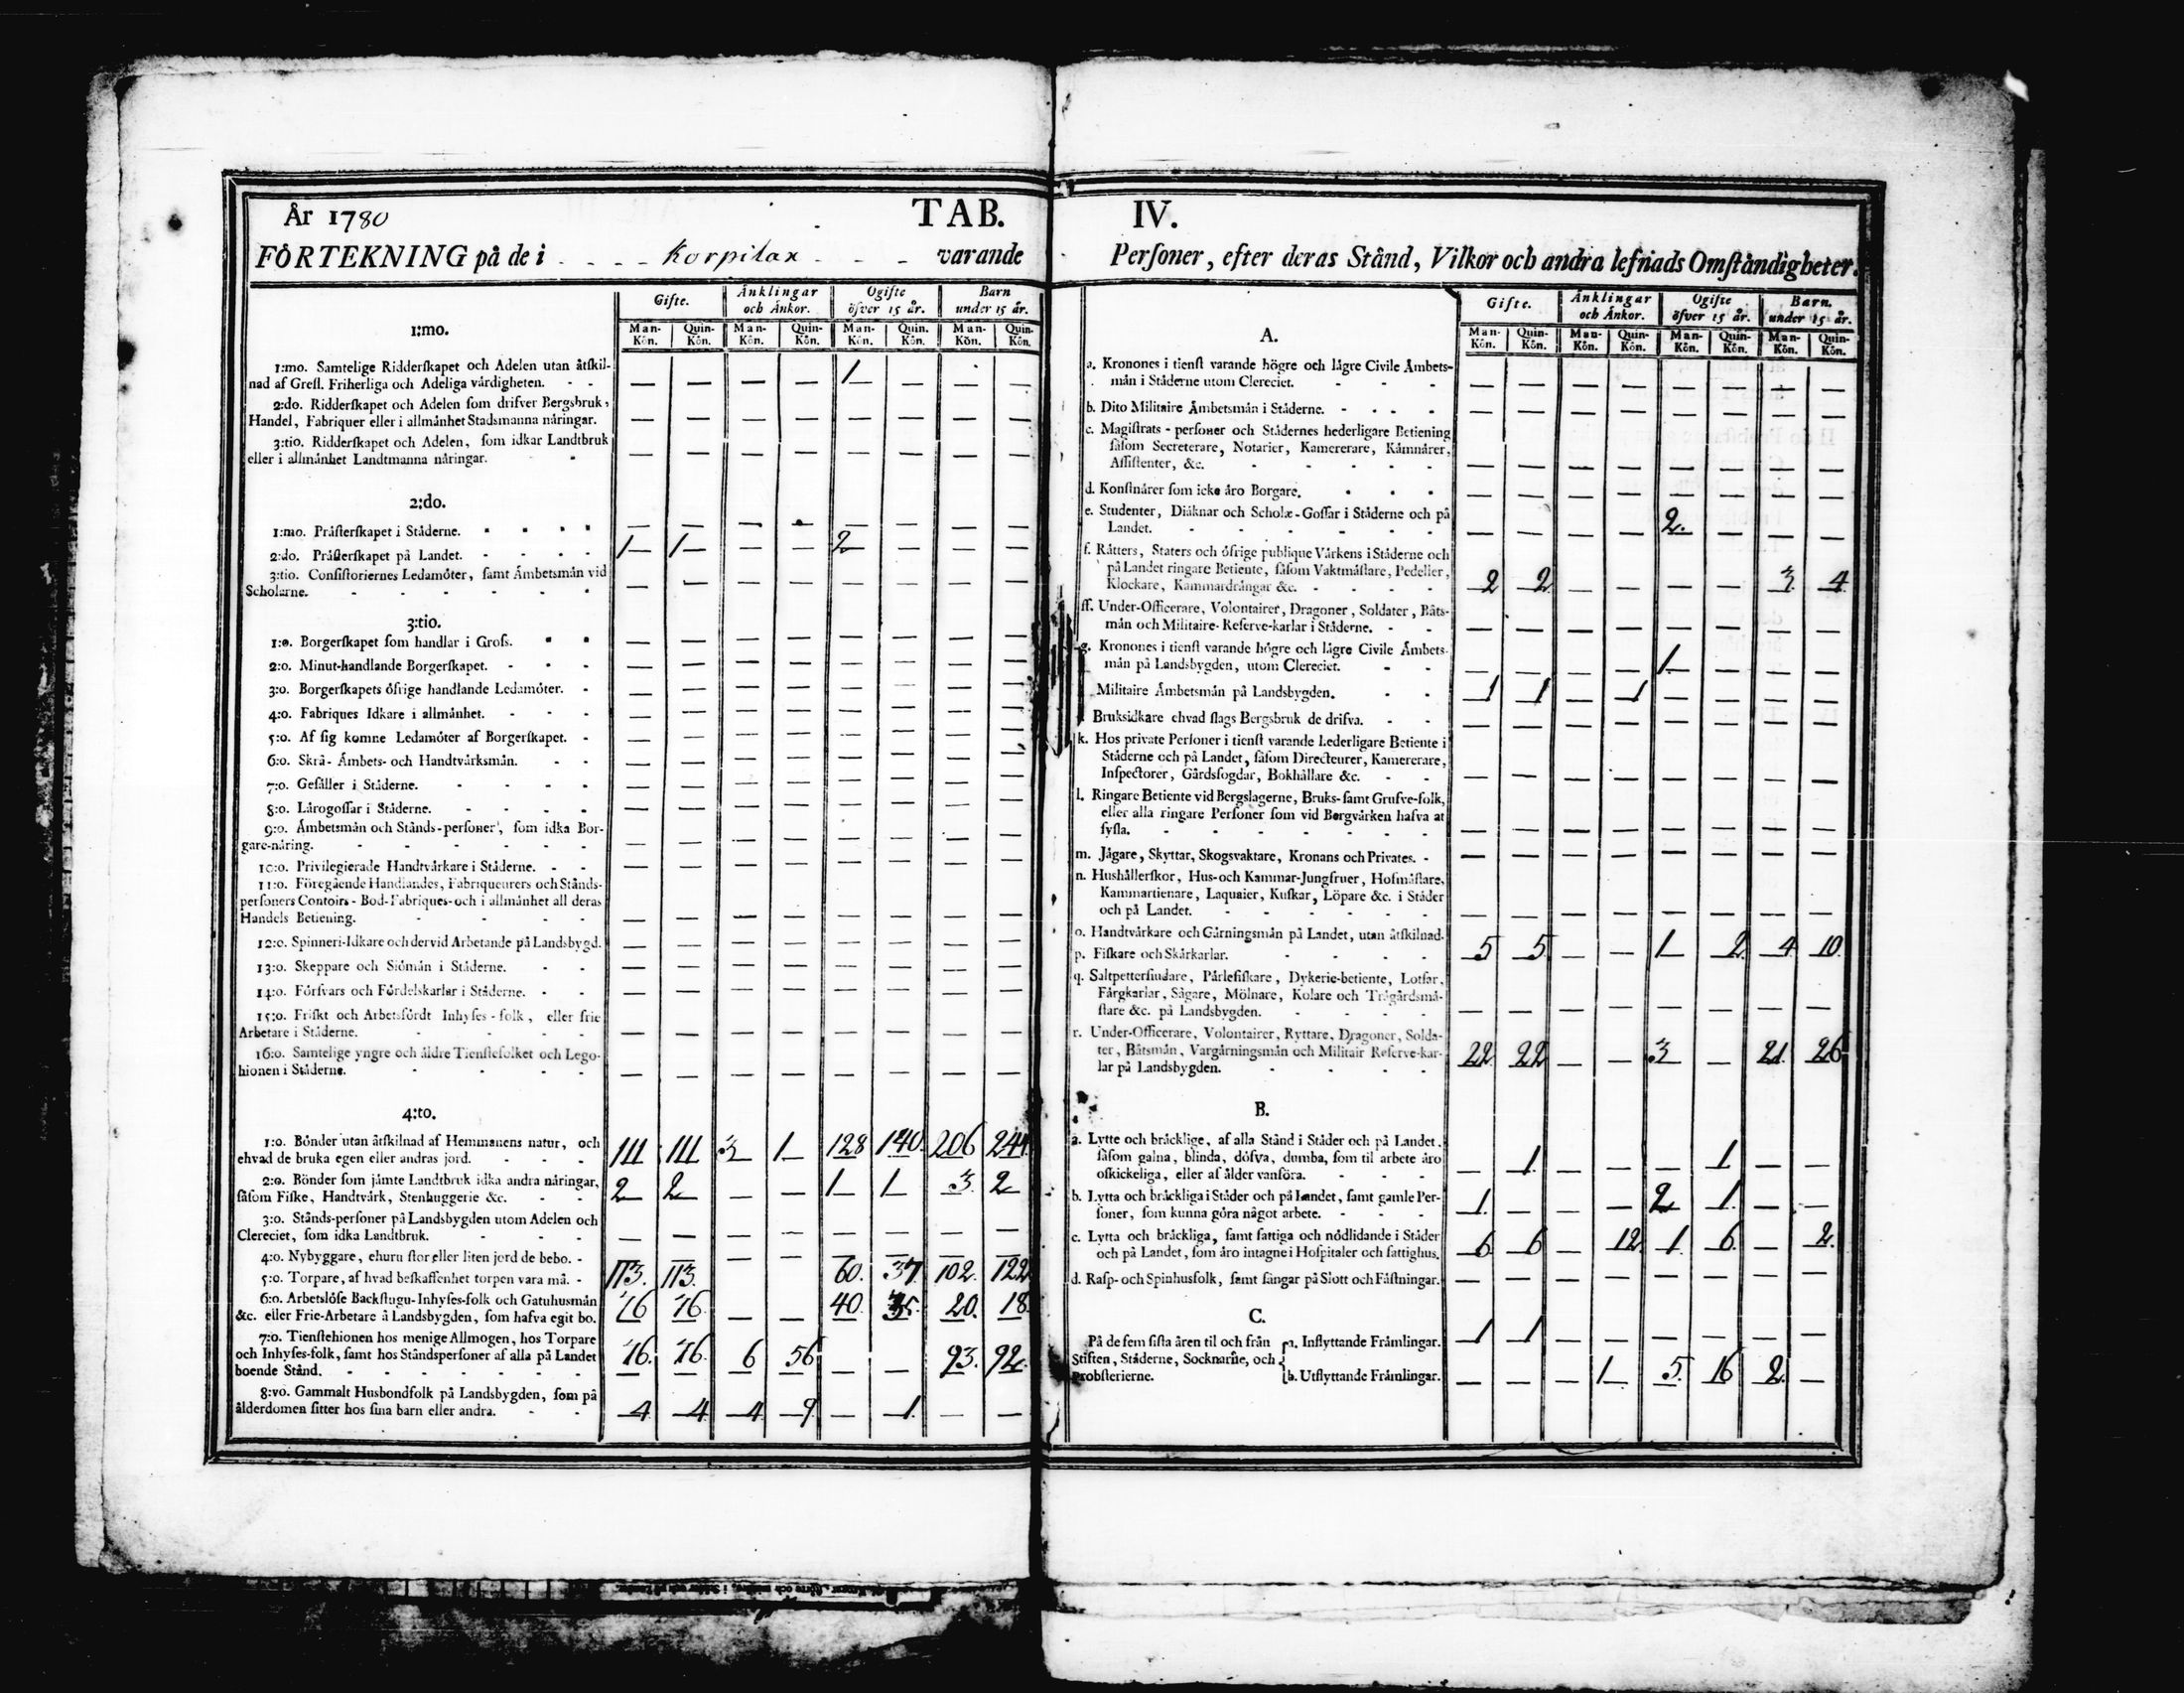 År 1780 TAB.
FÖRTEKNING på de i - - - - Korpilax - - - varande
Gifte. Änklingar och Änkor. Ogifte öfver 15 år. Barn under 15 år.
Man-Kön. Quin-Kön. Man-Kön. Quin-Kön. Man-Kön. Quin-Kön. Man-Kön. Quin-Kön.
1:mo.
1:mo. Samtelige Ridderſkapet och Adelen utan åtſkil-
nad af Grefl. Friherliga och Adeliga vårdigheten. - - — — — — 1 — — —
2:do. Ridderſkapet och Adelen ſom drifver Bergsbruk,
Handel, Fabriquer eller i allmånhet Stadsmanna nåringar. — — — — — — — —
3:tio. Ridderſkapet och Adelen, ſom idkar Landtbruk
eller i allmånhet Landtmanna nåringar. - — — — — — — — —
2:do.
1:mo. Pråſterſkapet i Ståderne. - - - - — — — — — — — —
2:do. Pråſterſkapet på Landet. - - - - 1 1 — — 2 — — —
3:tio. Conſiſtoriernes Ledamöter, ſamt Åmbetsmån vid
Scholarne. - - - - - - — — — — — — — —
3:tio.
1:o. Borgerſkapet ſom handlar i Groſs. - - — — — — — — — —
2:o. Minut-handlande Borgerſkapet. - - - — — — — — — — —
3:o. Borgerſkapets öfrige handlande Ledamöter. - — — — — — — — —
4:o. Fabriques Idkare i allmånhet. - - - — — — — — — — —
5:o. Af ſig komne Ledamöter af Borgerſkapet. - — — — — — — — —
6:o. Skrå- Åmbets- och Handtvårksmån. - - — — — — — — — —
7:o. Gefåller i Ståderne. - - - - — — — — — — — —
8:o. Lårogoſſar i Ståderne. - - - - — — — — — — — —
9:o. Åmbetsmån och Stånds-perſoner, ſom idka Bor-
gare-nåring. - - - - - — — — — — — — —
10:o. Privilegierade Handtvårkare i Ståderne. - - — — — — — — — —
11:o. Föregående Handlandes, Fabriqueurers och Stånds-
perſoners Contoirs - Bod- Fabriques- och i allmånhet all deras
Handels Betiening. - - - - — — — — — — — —
12:o. Spinneri-Idkare och dervid Arbetande på Landsbygd. — — — — — — — —
13:o. Skeppare och Siömån i Ståderne. - - — — — — — — — —
14:o. Förſvars och Fördelskarlar i Ståderne. - - — — — — — — — —
15:o. Friſkt och Arbetsfördt Inhyſes - folk, eller frie
Arbetare i Ståderne. - - - - — — — — — — — —
16:o. Samtelige yngre och åldre Tienſtefolket och Lego-
hionen i Ståderne. - - - - — — — — — — — —
4:to.
1:o. Bönder utan åtſkilnad af Hemmanens natur, och
ehvad de bruka egen eller andras jord. - - - 111 111 3 1 128 140. 206 244.
2:o. Bönder ſom jåmte Landtbruk idka andra nåringar,
ſåſom Fiſke, Handtvårk, Stenhuggerie &c. - - 2 2 — — 1 1 3. 2
3:o. Stånds-perſoner på Landsbygden utom Adelen och
Clereciet, ſom idka Landtbruk. - - - — — — — — — — —
4:o. Nybyggare, ehuru ſtor eller liten jord de bebo. - — — — — — — — —
5:o. Torpare, af hvad beſkaffenhet torpen vara må. - 113. 113. 60. 37. 102. 122
6:o. Arbetslöſe Backſtugu-Inhyſes-folk och Gatuhusmån
&c. eller Frie-Arbetare å Landsbygden, ſom hafva egit bo. 16 16. — — 40. 35. 20. 18.
7:o. Tienſtehionen hos menige Allmogen, hos Torpare
och Inhyſes-folk, ſamt hos Ståndsperſoner af alla på Landet
boende Stånd. - - - - - - 16. 16. 6 56 — — 93. 92.
8:vo. Gammalt Husbondfolk på Landsbygden, ſom på
ålderdomen ſitter hos ſina barn eller andra. - - 4. 4. 4. 9. — 1. — —
IV.
Perſoner, efter deras Stånd, Vilkor och andra lefnads Omſtåndigheter.
Gifte. Änklingar och Änkor. Ogifte öfver 15 år. Barn. under 15 år.
Man-Kön. Quin-Kön. Man-Kön. Quin-Kön. Man-Kön. Quin-Kön. Man-Kön. Quin-Kön.
A.
a. Kronones i tienſt varande högre och lågre Civile Åmbets-
mån i Ståderne utom Clereciet. - - - — — — — — — — —
b. Dito Militaire Åmbetsmån i Ståderne. - - - - — — — — — — — —
c. Magiſtrats - perſoner och Stådernes hederligare Betiening
ſåſom Secreterare, Notarier, Kamererare, Kåmnårer,
Aſſiſtenter, &c. - - - - - — — — — — — — —
d. Konſtnårer ſom icke åro Borgare. - - - — — — — — — — —
e. Studenter, Diåknar och Scholæ-Goſſar i Ståderne och på
Landet. - - - - - - — — — — 2. — — —
f. Råtters, Staters och öfrige publique Vårkens i Ståderne och
på Landet ringare Betiente, ſåſom Vaktmåſtare, Pedeller,
Klockare, Kammardrångar &c. - - - - 2 2 — — — — 3. 4.
ff. Under-Officerare, Volontairer, Dragoner, Soldater, Båts-
mån och Militaire- Reſerve-karlar i Ståderne. - - — — — — — — — —
g. Kronones i tienſt varande högre och lågre Civile Åmbets-
mån på Landsbygden, utom Clereciet. - - — — — — 1. — — —
Militaire Åmbetsmån på Landsbygden. - - 1 1 — 1 — — — —
Bruksidkare ehvad ſlags Bergsbruk de drifva. - - — — — — — — — —
k. Hos private Perſoner i tienſt varande hederligare Betiente i
Ståderne och på Landet, ſåſom Directeurer, Kamererare,
Inſpectorer, Gårdsfogdar, Bokhållare &c. - - — — — — — — — —
l. Ringare Betiente vid Bergslagerne, Bruks- ſamt Grufve-folk,
eller alla ringare Perſoner ſom vid Bergvårken hafva at
ſyſla. - - - - - - — — — — — — — —
m. Jågare, Skyttar, Skogsvaktare, Kronans och Privates. - — — — — — — — —
n. Hushållerſkor, Hus- och Kammar-Jungfruer, Hofmåſtare,
Kammartienare, Laquaier, Kuſkar, Löpare &c. i Ståder
och på Landet. - - - - - — — — — — — — —
o. Handtvårkare och Gårningsmån på Landet, utan åtſkilnad. 5 5 — — 1 2. 4 10.
p. Fiſkare och Skårkarlar. - - - -
q. Saltpetterſiudare, Pårlefiſkare, Dykerie-betiente, Lotſar,
Fårgkarlar, Sågare, Mölnare, Kolare och Trågårdsmå-
ſtare &c. på Landsbygden. - - - — — — — — — — —
r. Under-Officerare, Volontairer, Ryttare, Dragoner, Solda-
ter, Båtsmån, Vargårningsmån och Militair Reſerve-kar-
lar på Landsbygden. - - - - 22. 22 — — 3 — 21. 26.
B.
a. Lytte och bråcklige, af alla Stånd i Ståder och på Landet.
ſåſom galna, blinda, döfva, dumba, ſom til arbete åro
oſkickeliga, eller af ålder vanföra. - - - — 1. — — — 1 — —
b. Lytta och bråckliga i Ståder och på Landet, ſamt gamle Per-
ſoner, ſom kunna göra något arbete. - - - 1. — — — 2 1. — —
c. Lytta och bråckliga, ſamt fattiga och nödlidande i Ståder
och på Landet, ſom åro intagne i Hoſpitaler och fattighus. 6 6 — 12. 1. 6. — 2.
d. Raſp- och Spinhusfolk, ſamt fångar på Slott och Fåſtningar. — — — — — — — —
C.
På de fem ſiſta åren til och från
Stiften, Ståderne, Socknarne, och
Probſterierne.
a. Inflyttande Fråmlingar. 1 1 — — — — — —
b. Utflyttande Fråmlingar. — — — 1 5. 16 2. —